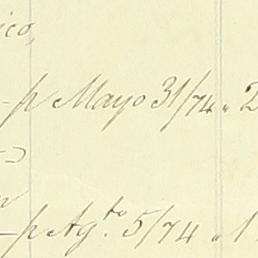 ico,
—p Mayo 31/74 " 2
—p Ag.to 5/74 " 1